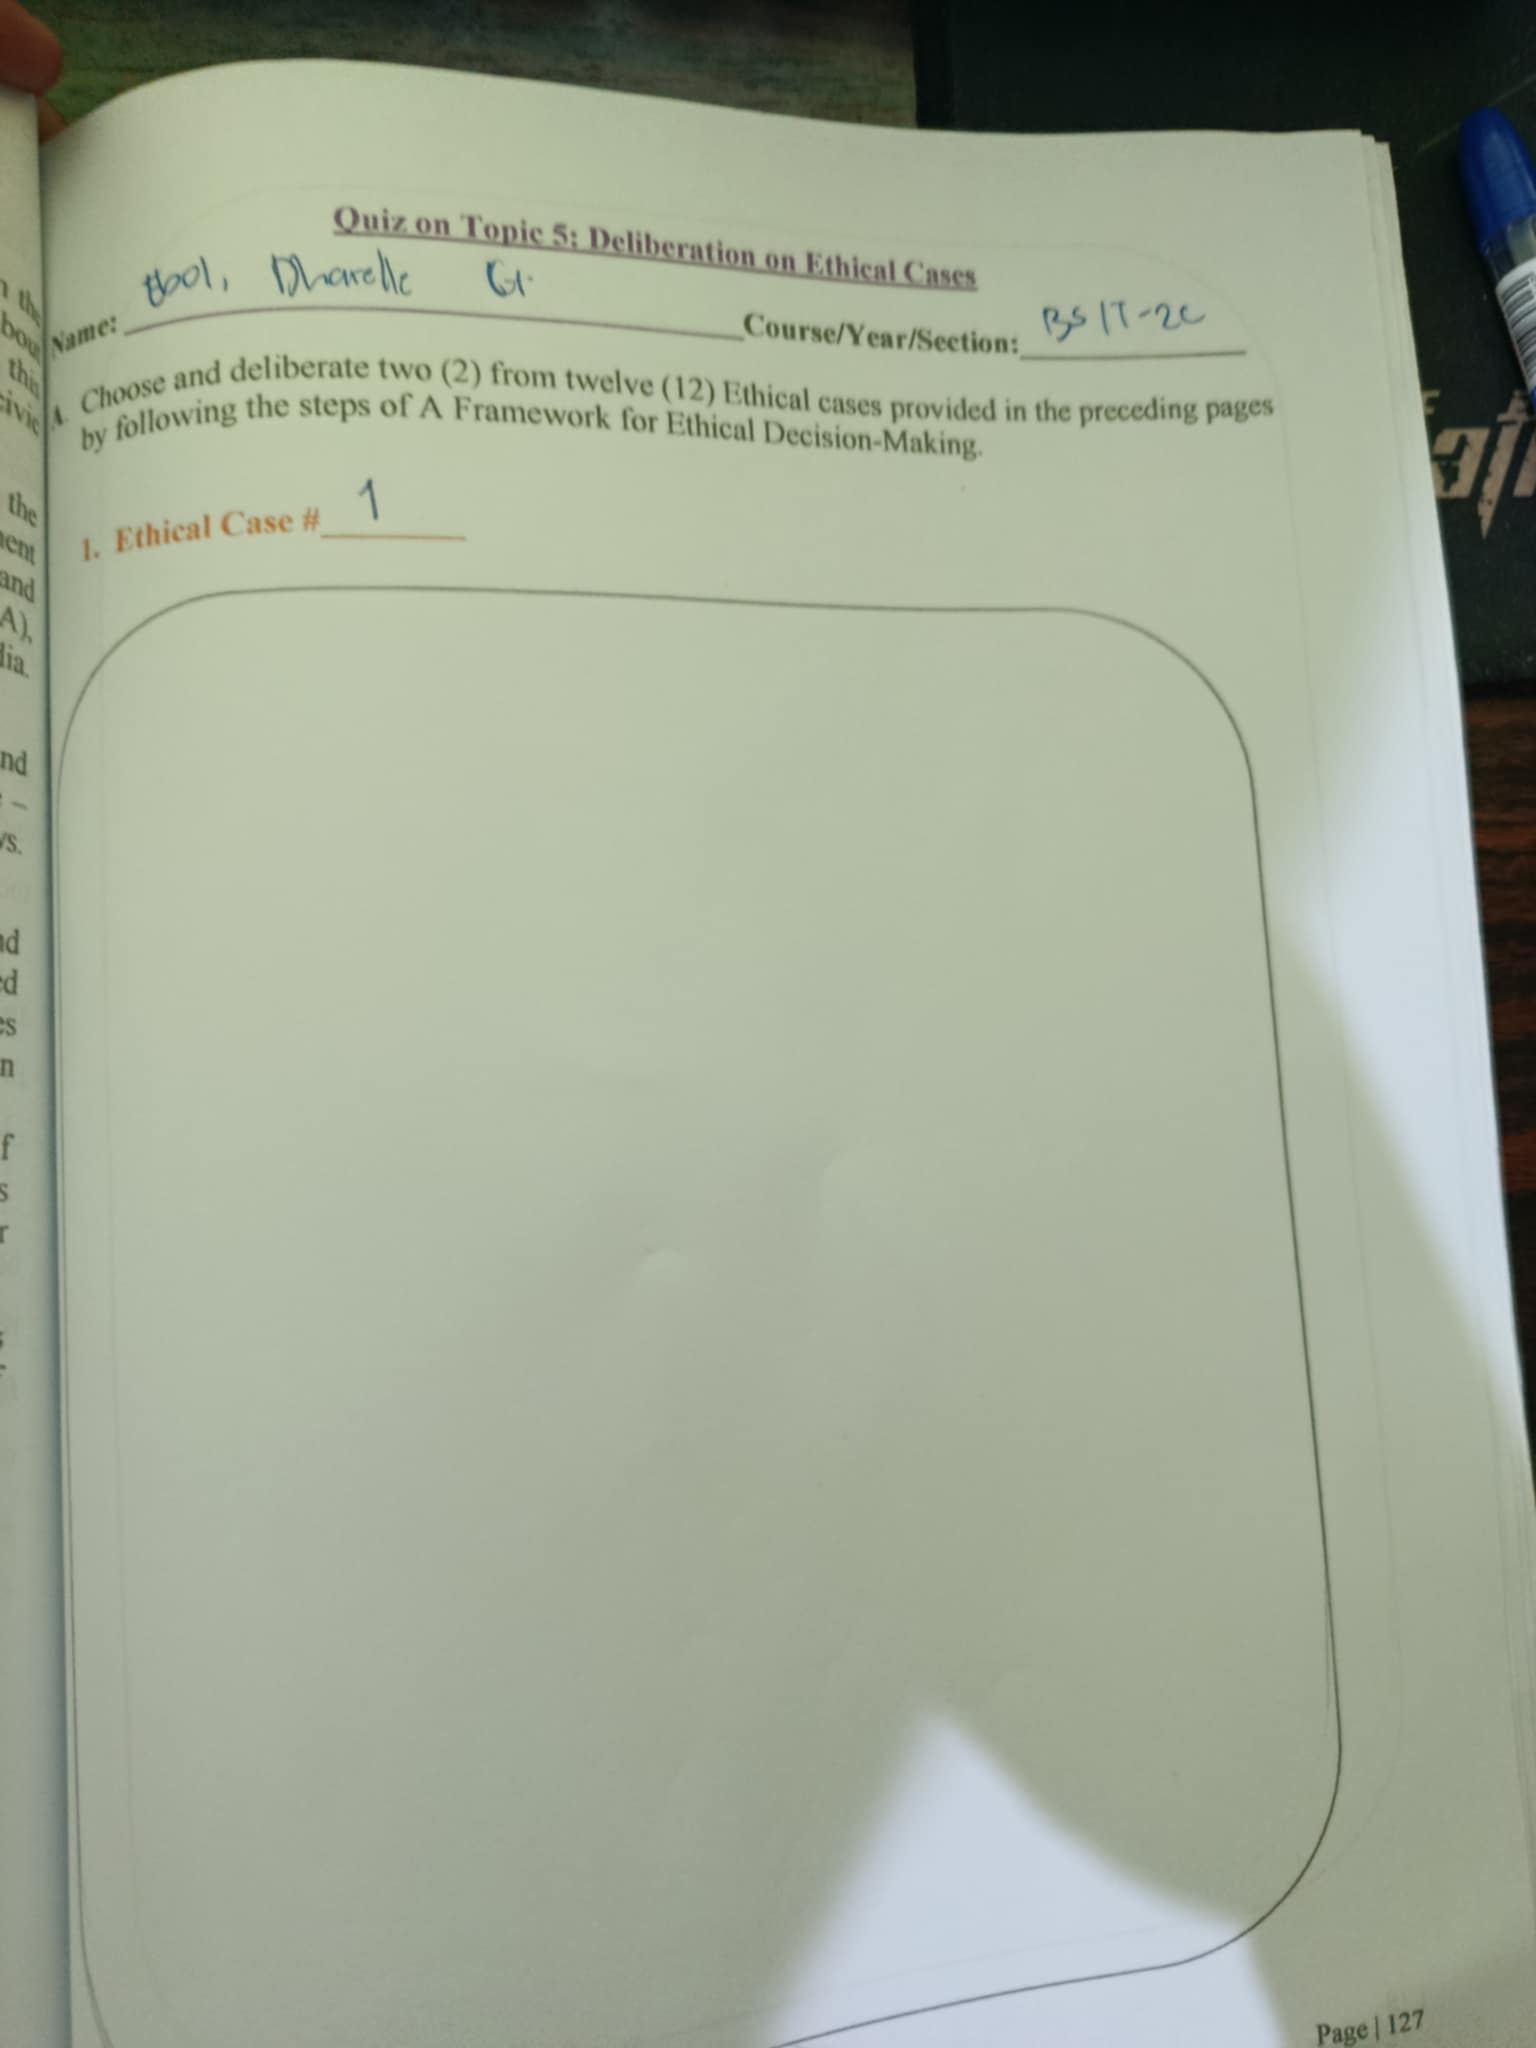 Quiz on Topic 5: Deliberation on Ethical Cases
Name: Ebol, Dharelle G.
Course/Year/Section: BSIT-2C
A. Choose and deliberate two (2) from twelve (12) Ethical cases provided in the preceding pages
by following the steps of A Framework for Ethical Decision-Making.
1. Ethical Case # 1
Page | 127
the
this
civic
the
and
A),
nd